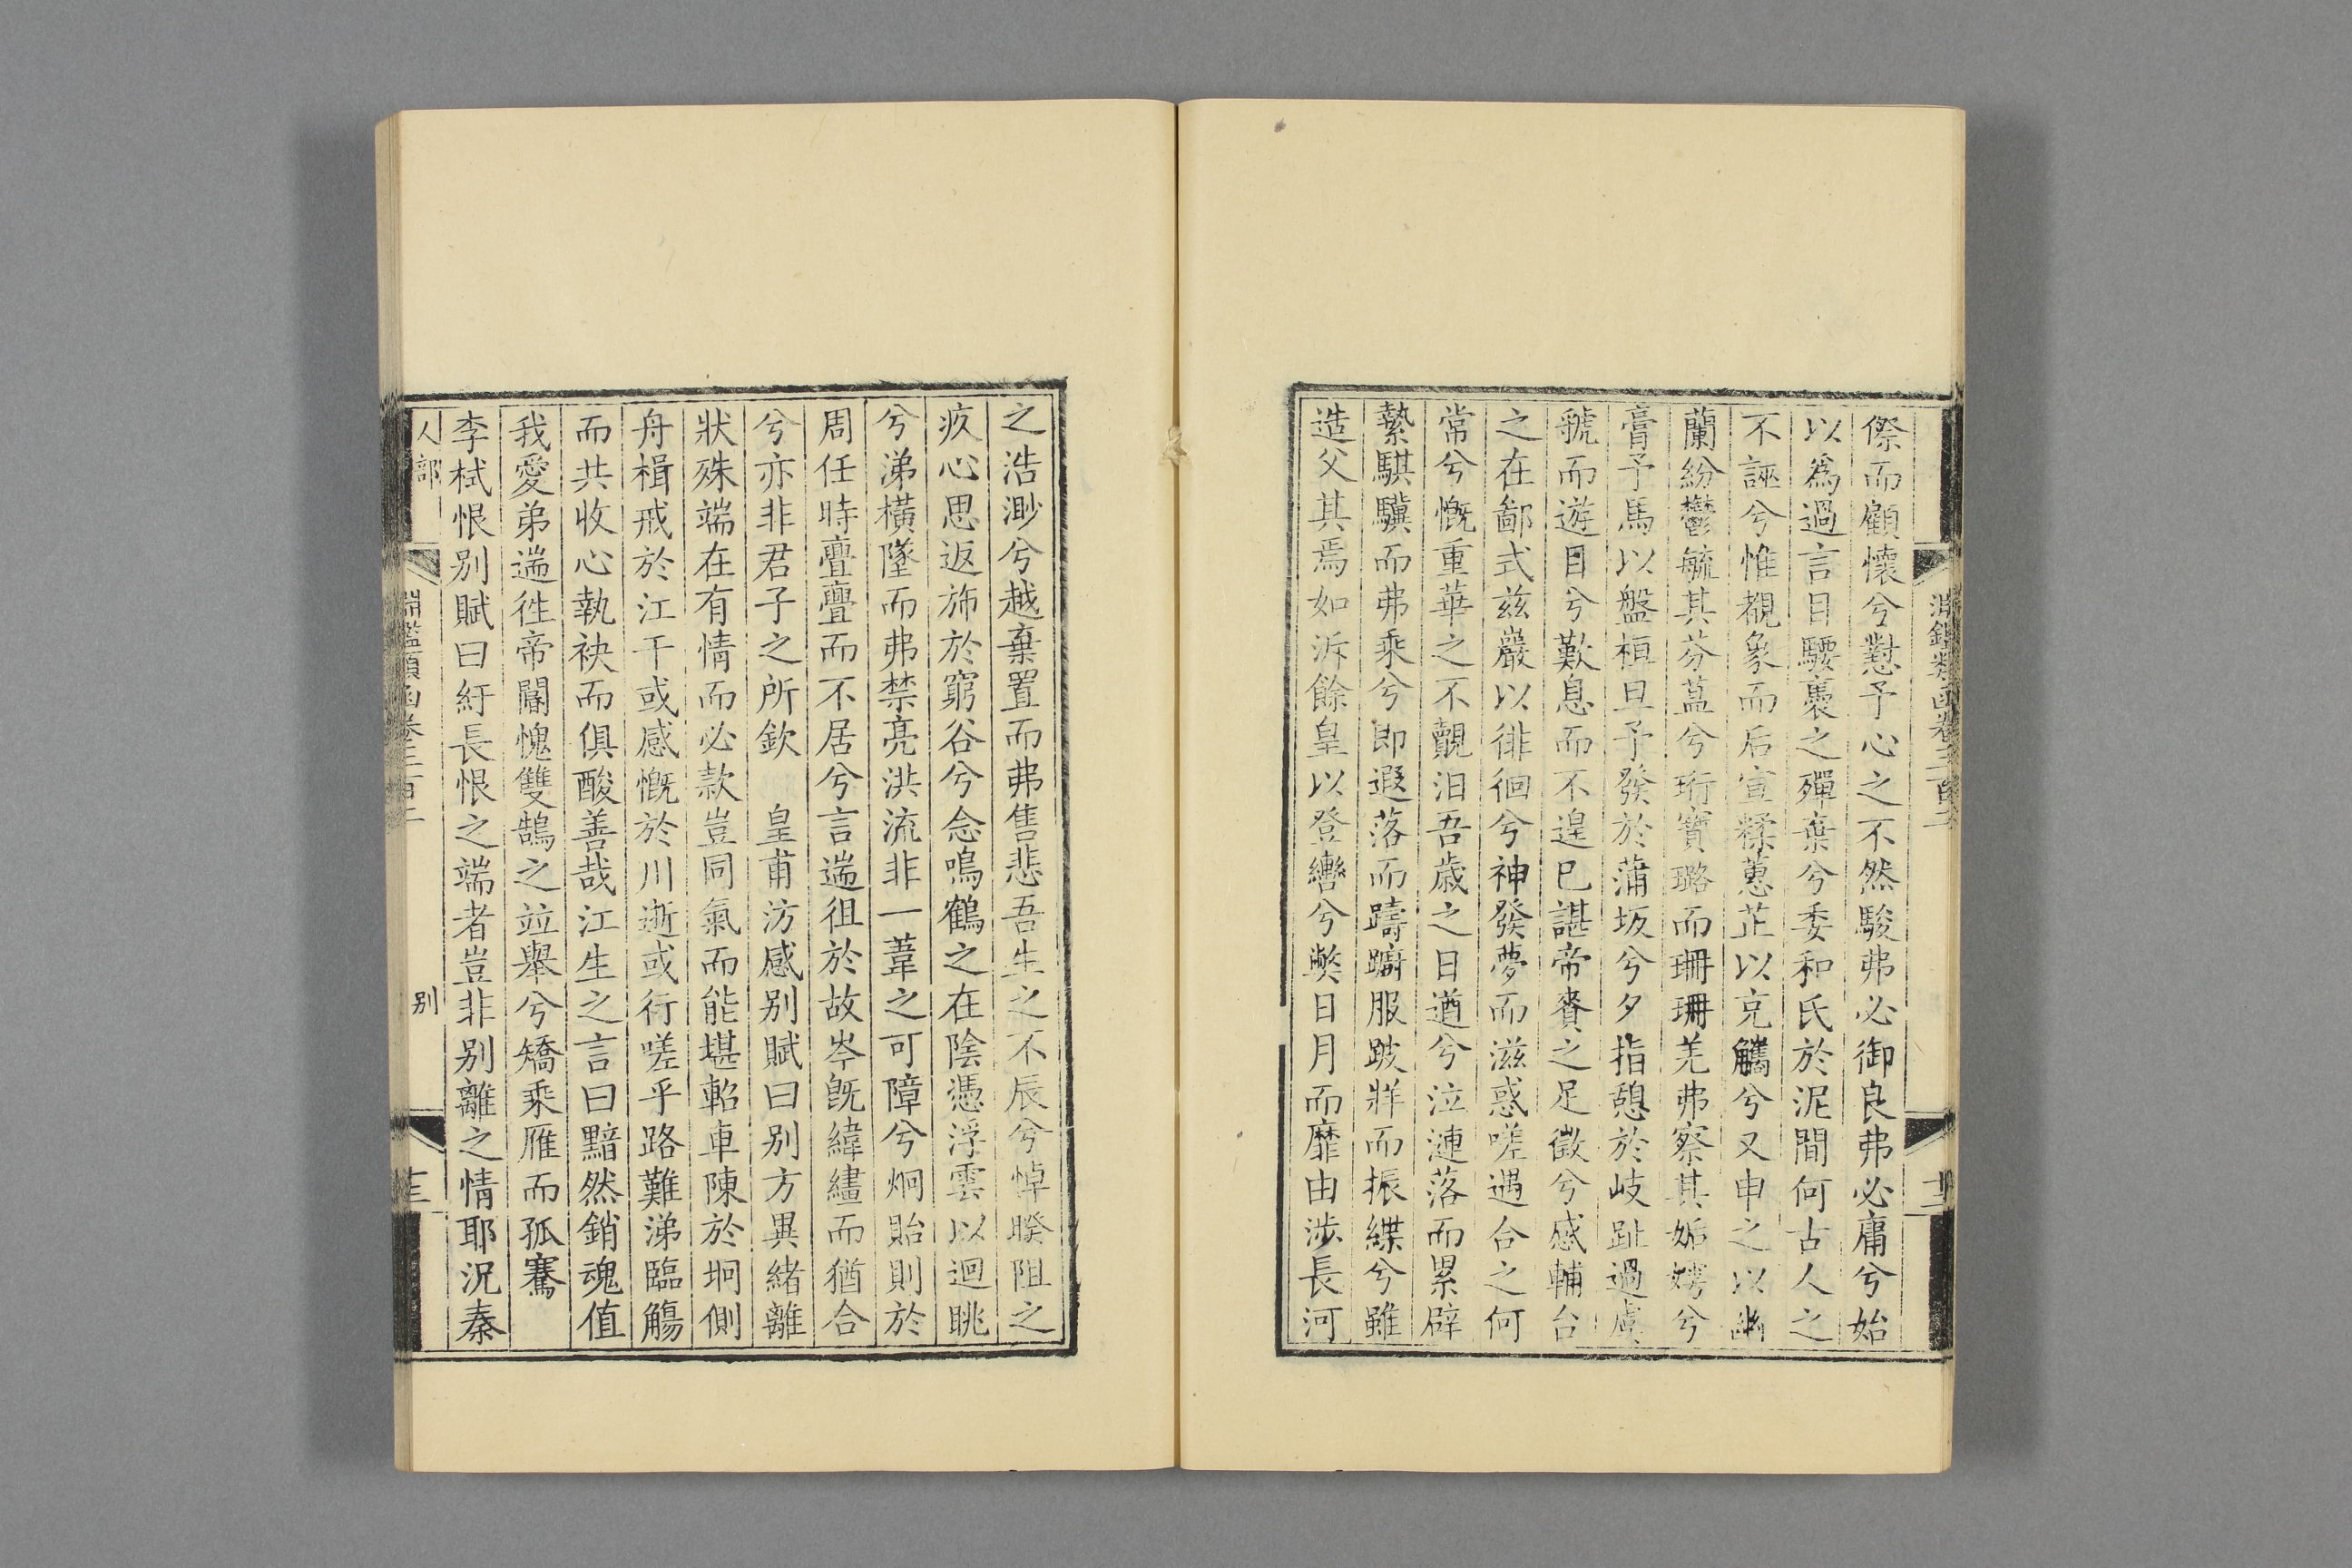 傺而顧懷兮懟予心之不然駿弗必御良弗必庸兮始
以為過言目騕褭之殫棄兮委和氏於泥間何古人之
不誣兮惟覩象而后宣糅蕙芷以克觿兮又申之以幽
蘭紛鬱毓其芬葢兮珩寶璐而珊珊羌弗察其姤嫮兮
膏予馬以盤桓旦予發於蒲坂兮夕指憩於岐趾過虞
虢而遊目兮歎息而不遑巳諶帝賚之足徵兮感輔台
之在鄙式兹巖以徘徊兮神發夢而滋惑嗟遇合之何
常兮慨重華之不覿汨吾歲之日遒兮泣漣落而累辟
縶騏驥而弗乘兮即遐落而躊躕服跛牂而振緤兮雖
造父其焉如泝餘皇以登巒兮獘日月而靡由涉長河
淵鑑類函卷三百二
之浩渺兮越棄置而弗售悲吾生之不辰兮悼暌阻之
疚心思返斾於窮谷兮念鳴鶴之在陰憑浮雲以迴眺
兮涕橫墜而弗禁亮洪流非一葦之可障兮炯貽則於
周任時亹亹而不居兮言遄徂於故岑旣緯繣而猶合
兮亦非君子之所欽　皇甫汸感别賦曰别方異緒離
狀殊端在有情而必款豈同氣而能堪軺車陳於坰側
舟楫戒於江干或感慨於川逝或行嗟乎路難涕臨觴
而共收心執袂而俱酸善哉江生之言曰黯然銷魂值
我愛弟遄徃帝閽愧雙鵠之竝舉兮矯乘雁而孤騫
李栻恨别賦曰紆長恨之端者豈非别離之情耶況秦
人部
淵鑑類函卷三百二
别